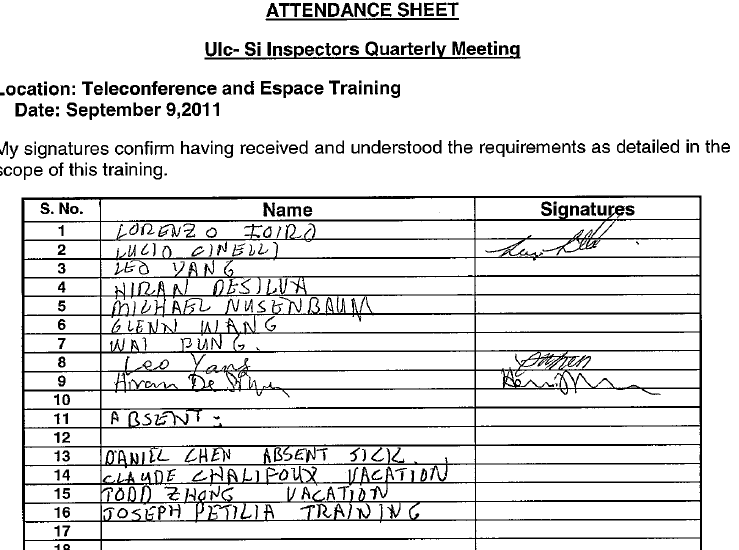 ATTENDANCE SHEET
Ulc- Si Inspectors Quarterly Meeting
Location: Teleconference and Espace Training
Date: September 9,2011
My signatures confirm having received and understood the requirements as detailed in the
scope of this training.
S. No. Name Signatures
1 LORENZO
2 LUCIO CINELLI
3 LEO YANG
4 HIRAN DESILVA
5 MICHAEL NUSENBAUM
6 GLENN WANG
7 WAI FUNG.
8 Leo Yang
9 De
10
11 ABSENT:
12
13 DANIEL CHEN ABSENT SICK.
14 CLAUDE CHALIFOUX VACATION
15 TODD ZHONG VACATION
16 JOSEPH PETILIA TRAINING
17
18